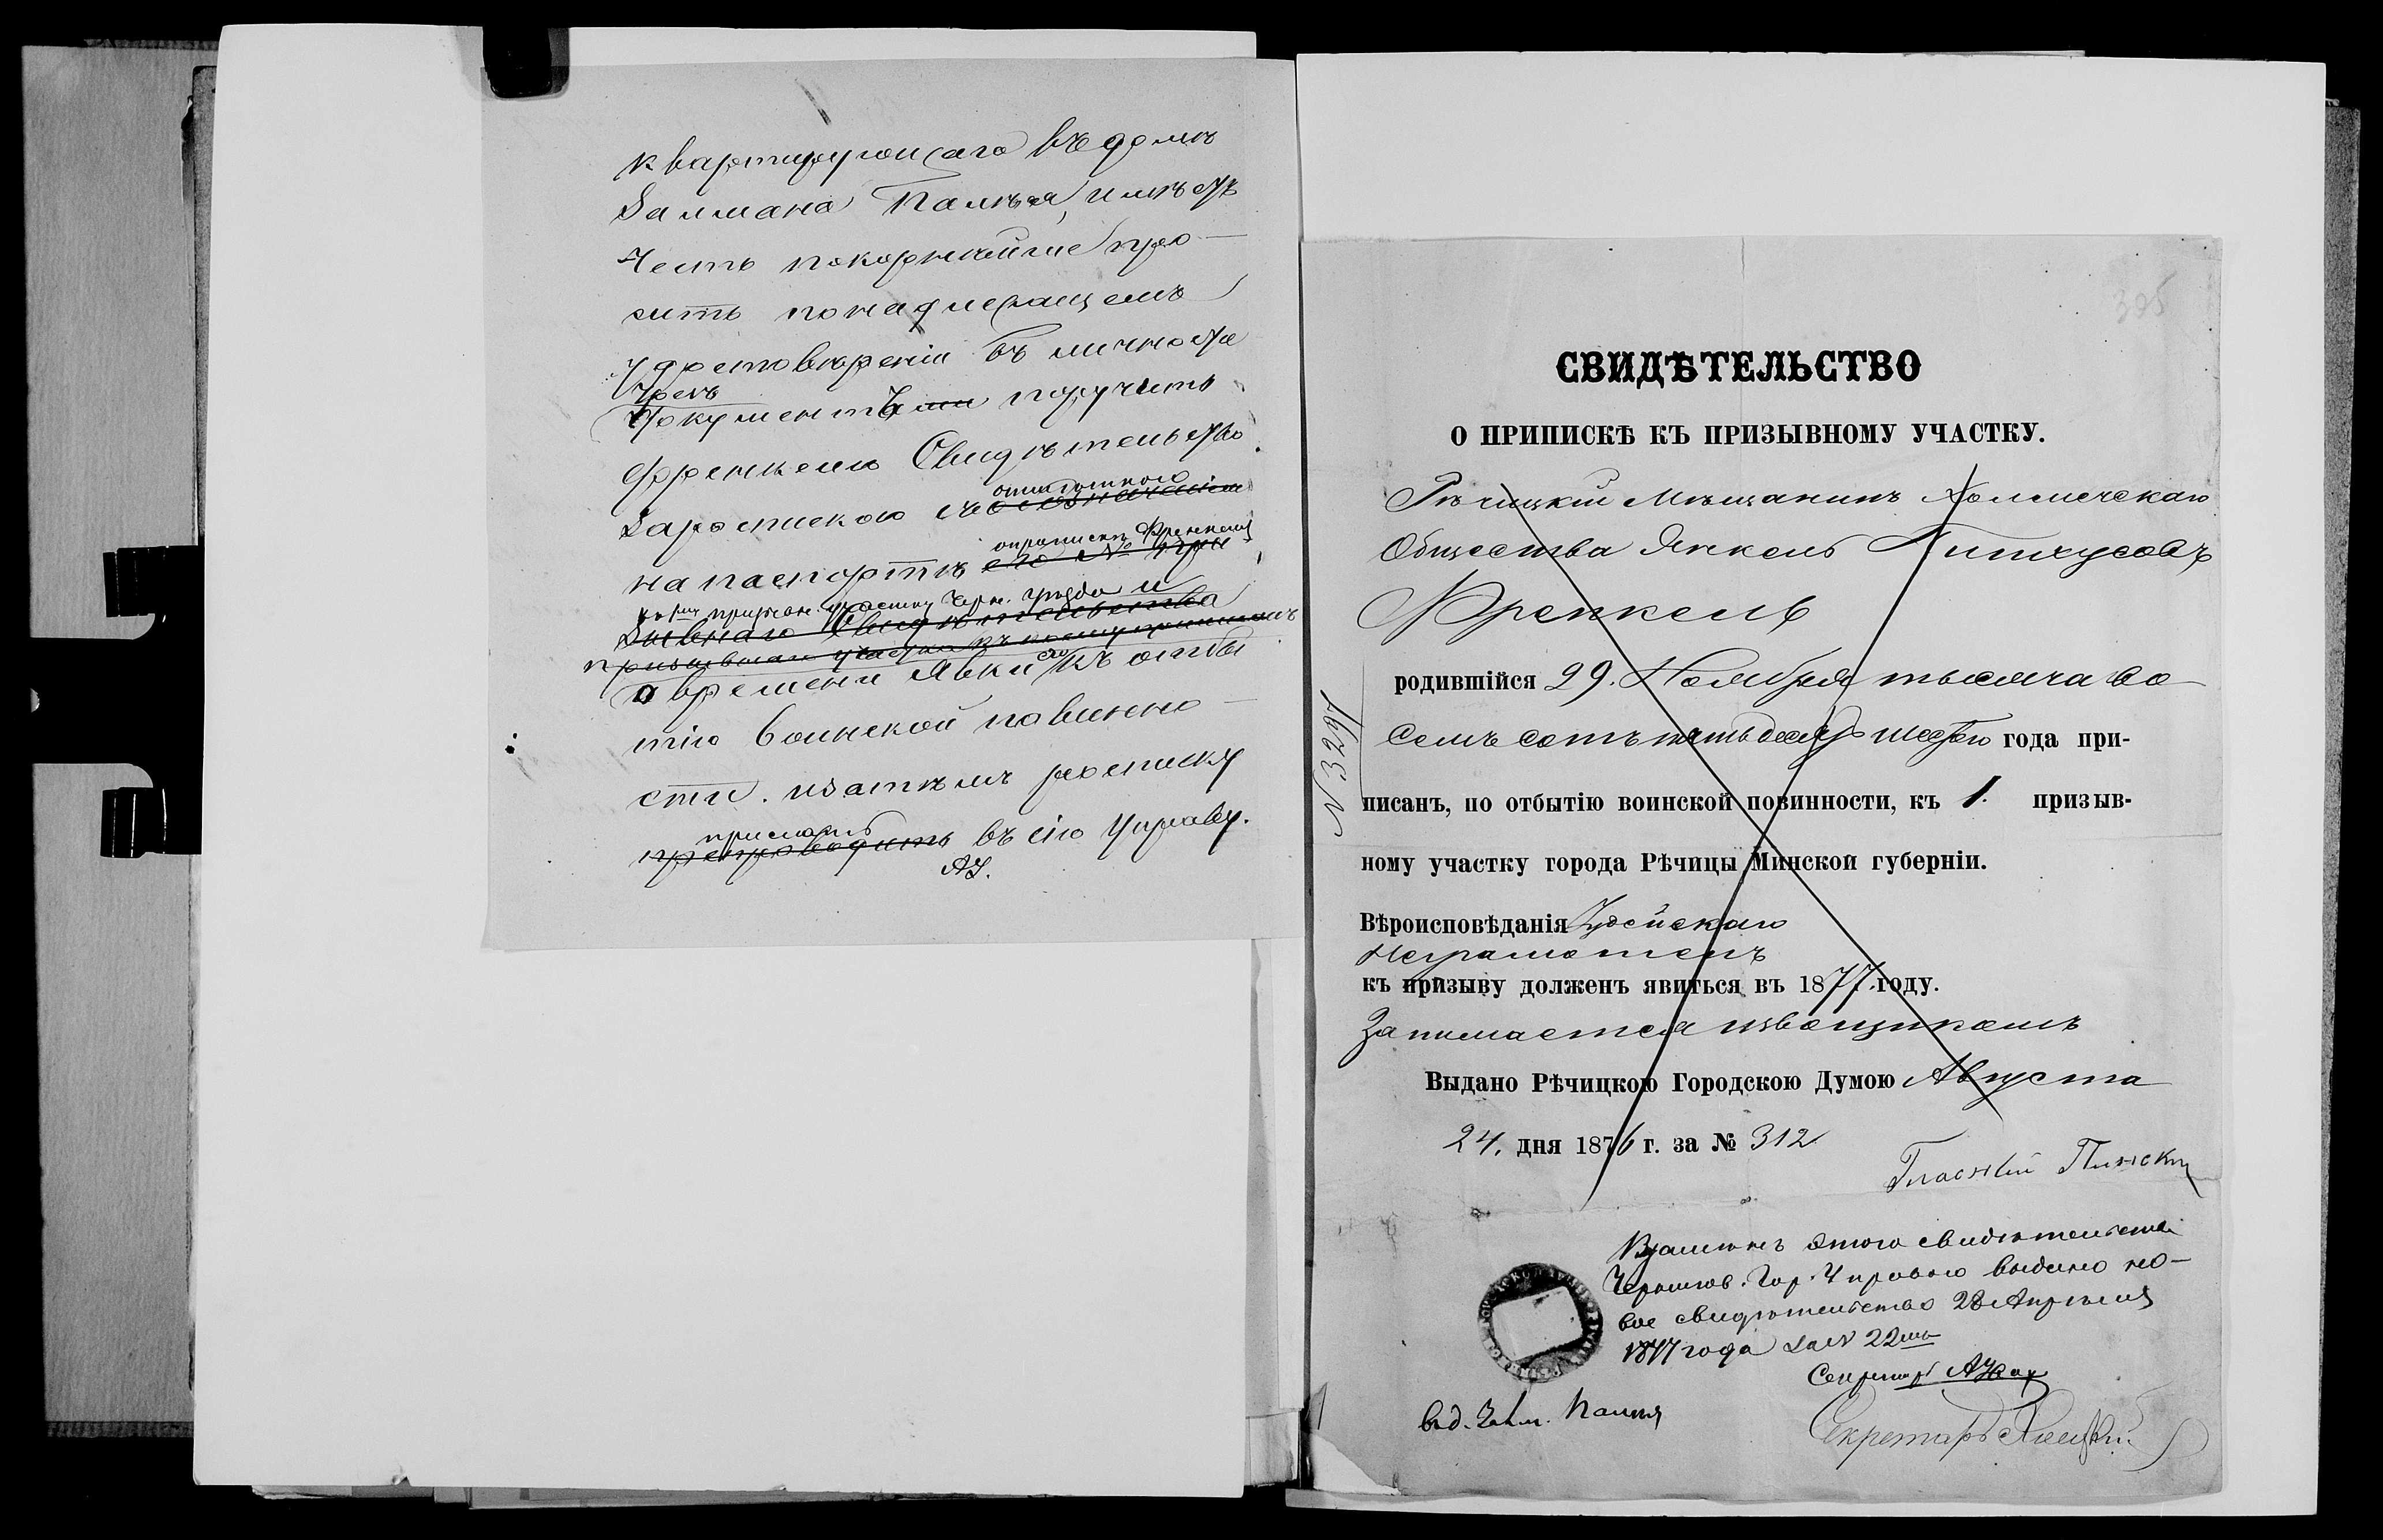 квартирующаго въ домѣ
Залмана Палѣя, имѣетъ
честь покорнѣйше про-
сить по надлежащемъ
удостовѣреніи въ личности
чрезъ
документы поручить
Френкелю Свидѣтельство
отмѣткою
за роспискою съ означеніемъ
о припискѣ Френкеля
на паспортѣ его №
къ призывн. участку Черн. города и
зывнаго Свидѣтельства
призывнаго участка къ
о времени явки его къ отбы
тію воинской повинно-
сти. и затѣмъ росписку
прислать
препроводить въ сію Управу.
305
СВИДѢТЕЛЬСТВО
О ПРИПИСКѢ КЪ ПРИЗЫВНОМУ УЧАСТКУ.
Рѣчицкій Мѣщанинъ Холмечскаго
Общества Янкель Пинхусовъ
Френкель
родившійся 29. Ноября тысяча во-
семьсотъ пятьдесятъ шестого года при-
писанъ, по отбытію воинской повинности, къ 1. призыв-
ному участку города Рѣчицы Минской губерніи.
Вѣроисповѣданія Іудейскаго
Неграмотенъ
къ призыву долженъ явиться въ 1877 году.
Занимается извощикомъ
Выдано Рѣчицкою Городскою Думою Августа
24. дня 1876 г. за № 312.
N 3297
Гласный Пинскій
Взамѣнъ этого свидѣтельства
Чернигов. Гор. Управою выдано но-
вое свидѣтельство 28 Апрѣля
1877 года за N 22мъ
Секретарь
вд. Залм. Палѣя
Секретарь